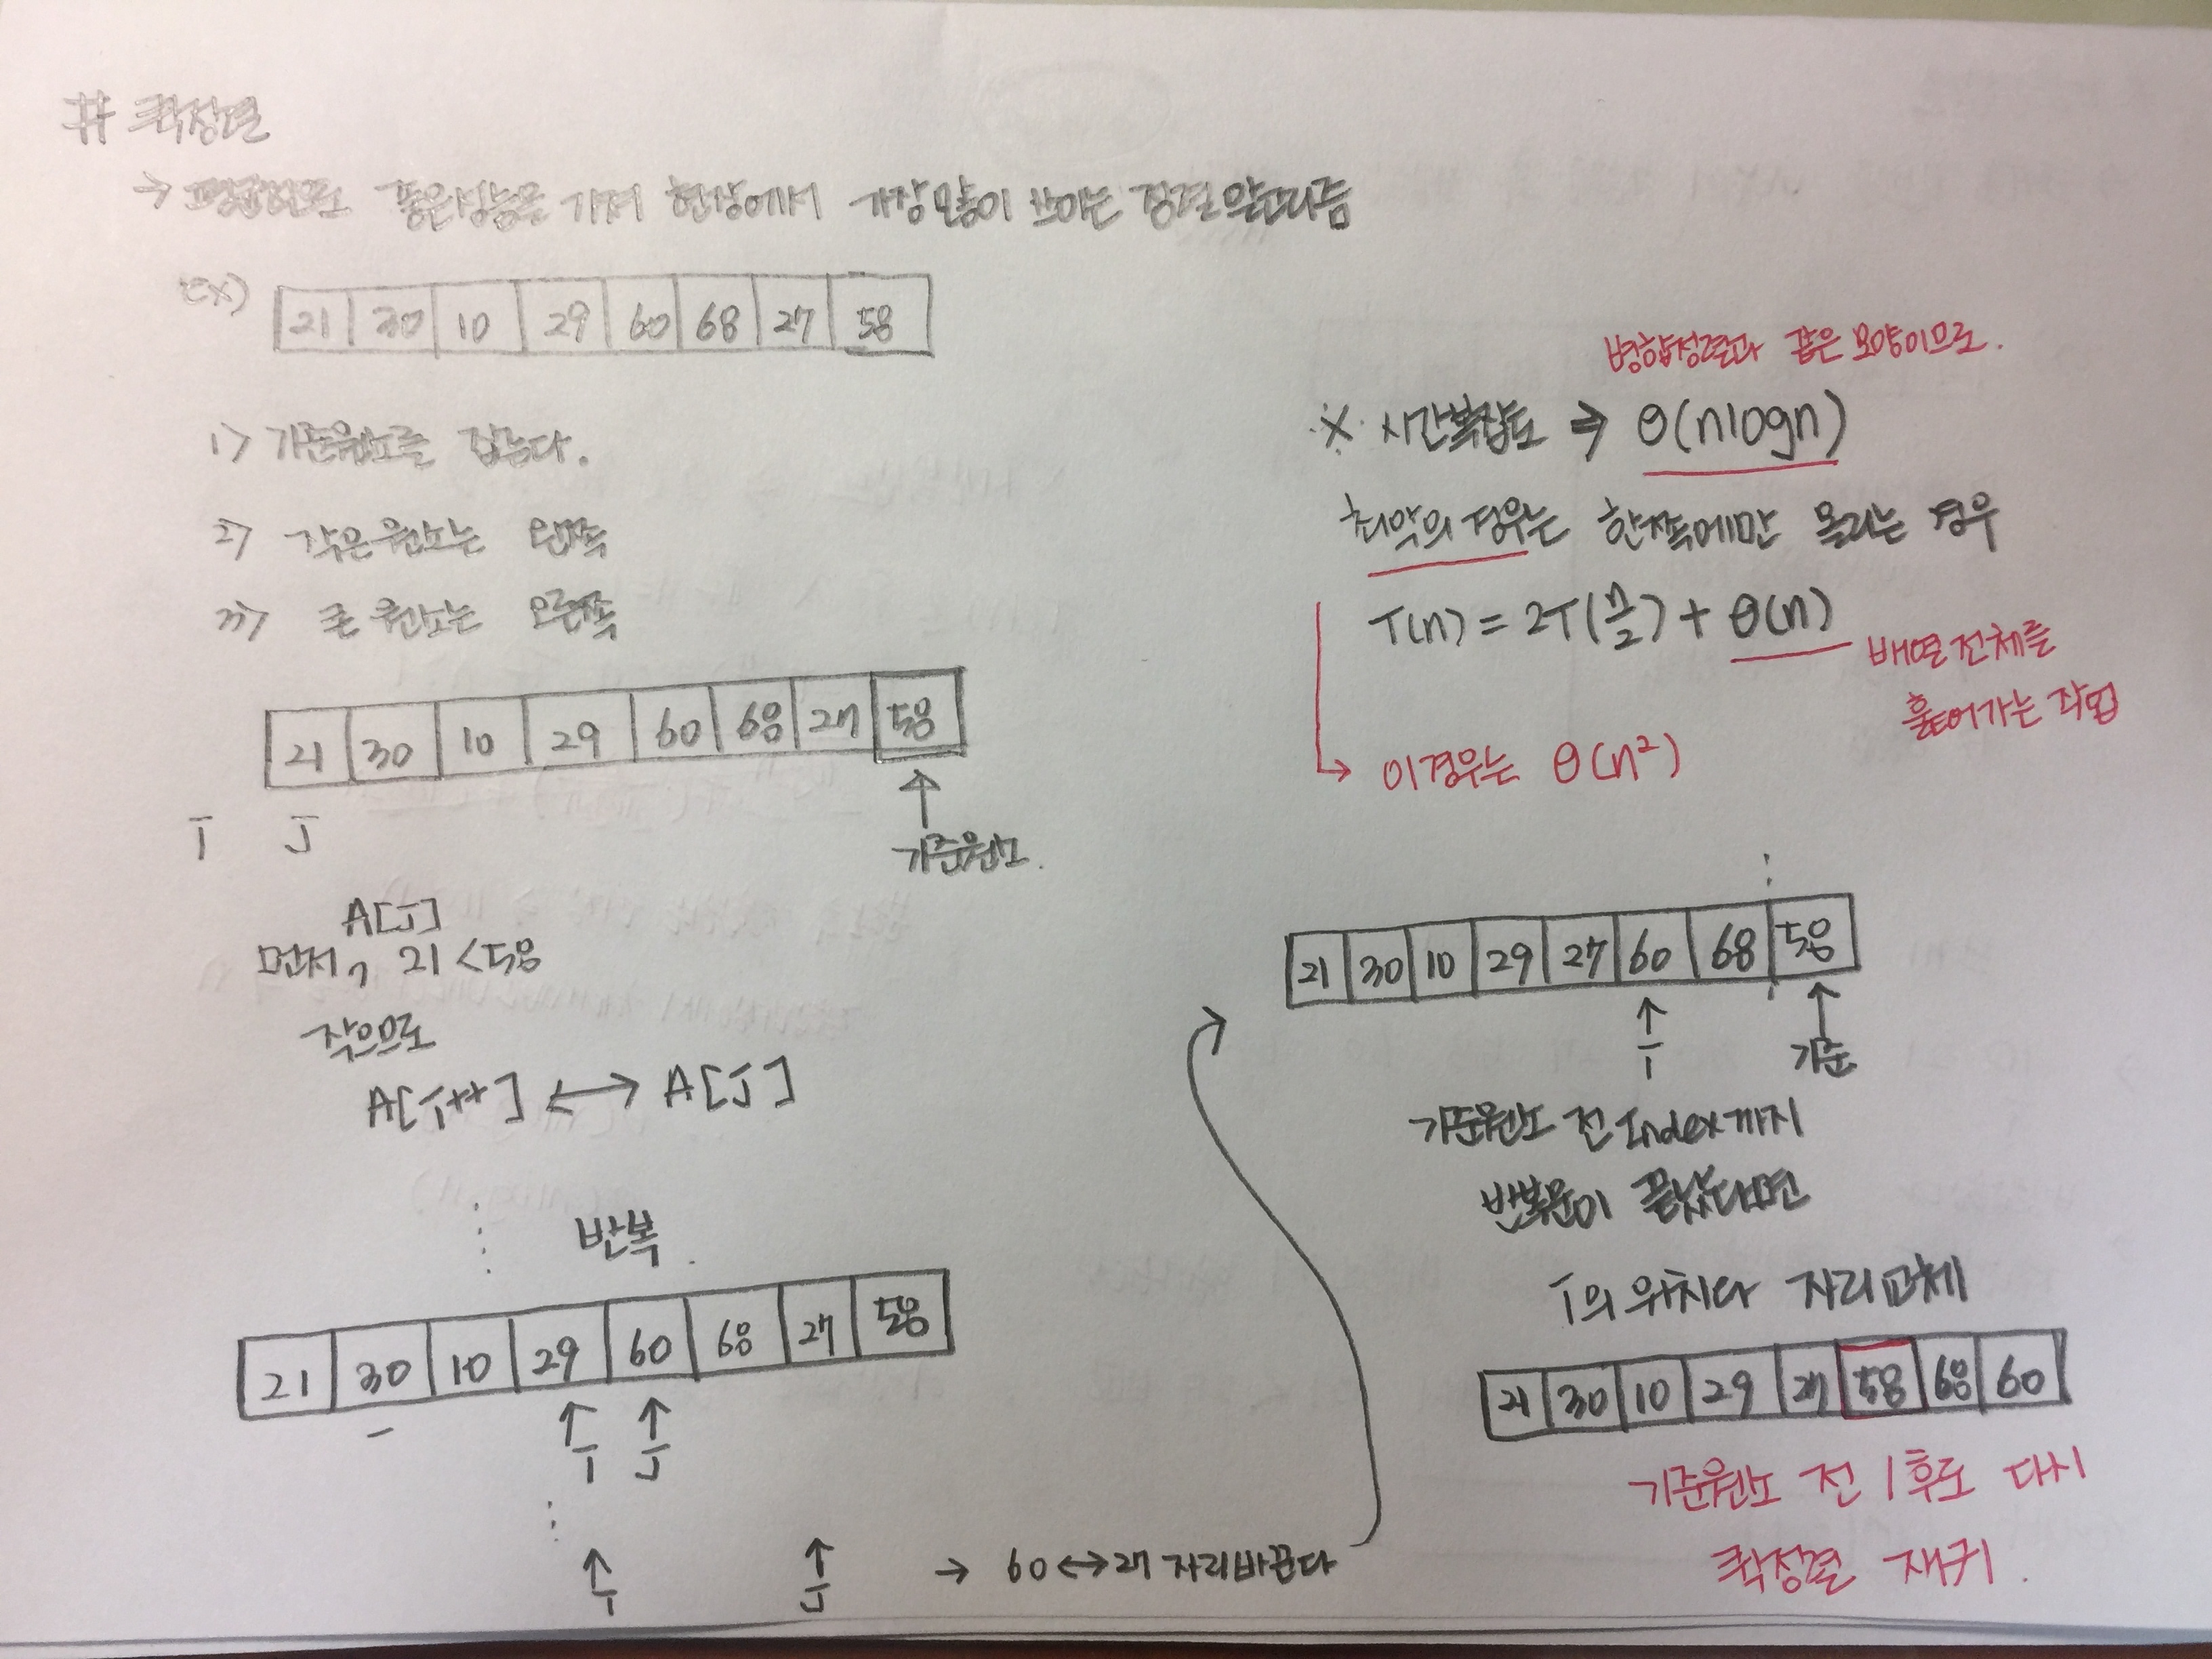 # 퀵정렬
→ 평균적으로 좋은성능을 가져 현장에서 가장 많이 쓰이는 정렬 알고리즘
EX)
21 30 10 29 60 68 27 58
1) 기준원소를 잡는다.
2) 작은 원소는 왼쪽
3) 큰 원소는 오른쪽
21 30 10 29 60 68 27 58
I J
기준원소.
A[J]
먼저, 21 < 58
작으므로
A[I++] ↔ A[J]
반복.
21 30 10 29 60 68 27 58
I J
I J
→ 60 ↔ 27 자리바꾼다
병합정렬과 같은 모양이므로.
※ 시간복잡도 ⇒ θ(nlogn)
최악의 경우는 한쪽에만 몰리는 경우
T(n) = 2T(n/2) + θ(n)
배열 전체를
훑어가는 작업
↳ 이경우는 θ(n²)
21 30 10 29 27 60 68 58
I 기준
기준원소 전 Index까지
반복문이 끝났다면
I의 위치와 자리교체
21 30 10 29 27 58 68 60
기준원소 전 / 후로 다시
퀵정렬 재귀.